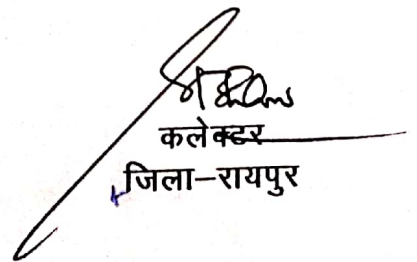 कलेक्टर
जिला–रायपुर